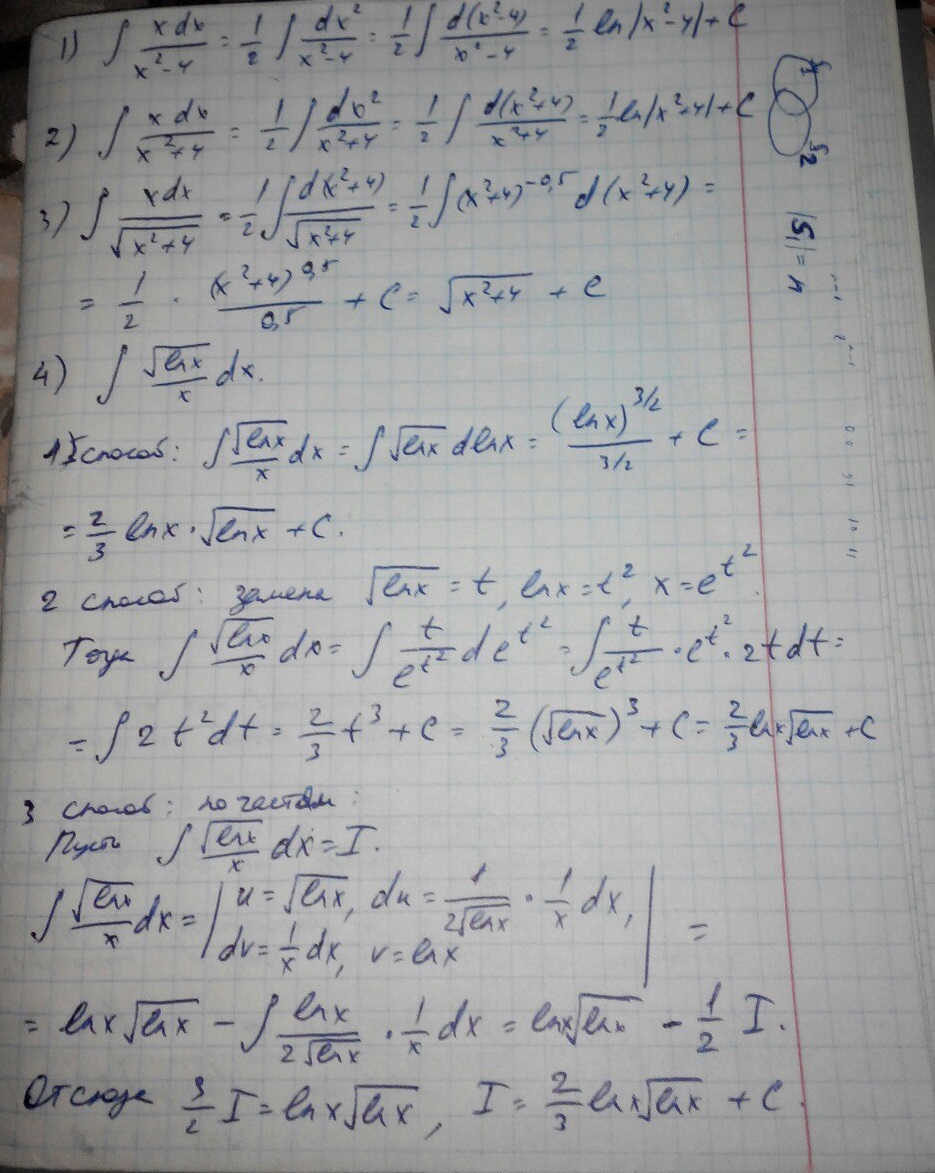 1) ∫ x dx / (x² - 4) = 1/2 ∫ dx² / (x² - 4) = 1/2 ∫ d(x² - 4) / (x² - 4) = 1/2 ln|x² - 4| + C
2) ∫ x dx / (x² + 4) = 1/2 ∫ dx² / (x² + 4) = 1/2 ∫ d(x² + 4) / (x² + 4) = 1/2 ln|x² + 4| + C
3) ∫ x dx / √(x² + 4) = 1/2 ∫ d(x² + 4) / √(x² + 4) = 1/2 ∫ (x² + 4)^(-0,5) d(x² + 4) =
= 1/2 · (x² + 4)^(0,5) / 0,5 + C = √(x² + 4) + C
4) ∫ √(ln x) / x dx.
1 способ: ∫ √(ln x) / x dx = ∫ √(ln x) d ln x = (ln x)^(3/2) / (3/2) + C =
= 2/3 ln x · √(ln x) + C.
2 способ: замена √(ln x) = t, ln x = t², x = e^(t²).
Тогда ∫ √(ln x) / x dx = ∫ t / e^(t²) d e^(t²) = ∫ t / e^(t²) · e^(t²) · 2t dt =
= ∫ 2 t² dt = 2/3 t³ + C = 2/3 (√(ln x))³ + C = 2/3 ln x √(ln x) + C
3 способ: по частям:
Пусть ∫ √(ln x) / x dx = I.
∫ √(ln x) / x dx = | u = √(ln x), du = 1 / (2√(ln x)) · 1/x dx,
dv = 1/x dx, v = ln x | =
= ln x √(ln x) - ∫ ln x / (2√(ln x)) · 1/x dx = ln x √(ln x) - 1/2 I.
Отсюда 3/2 I = ln x √(ln x), I = 2/3 ln x √(ln x) + C.
|S₁| = n